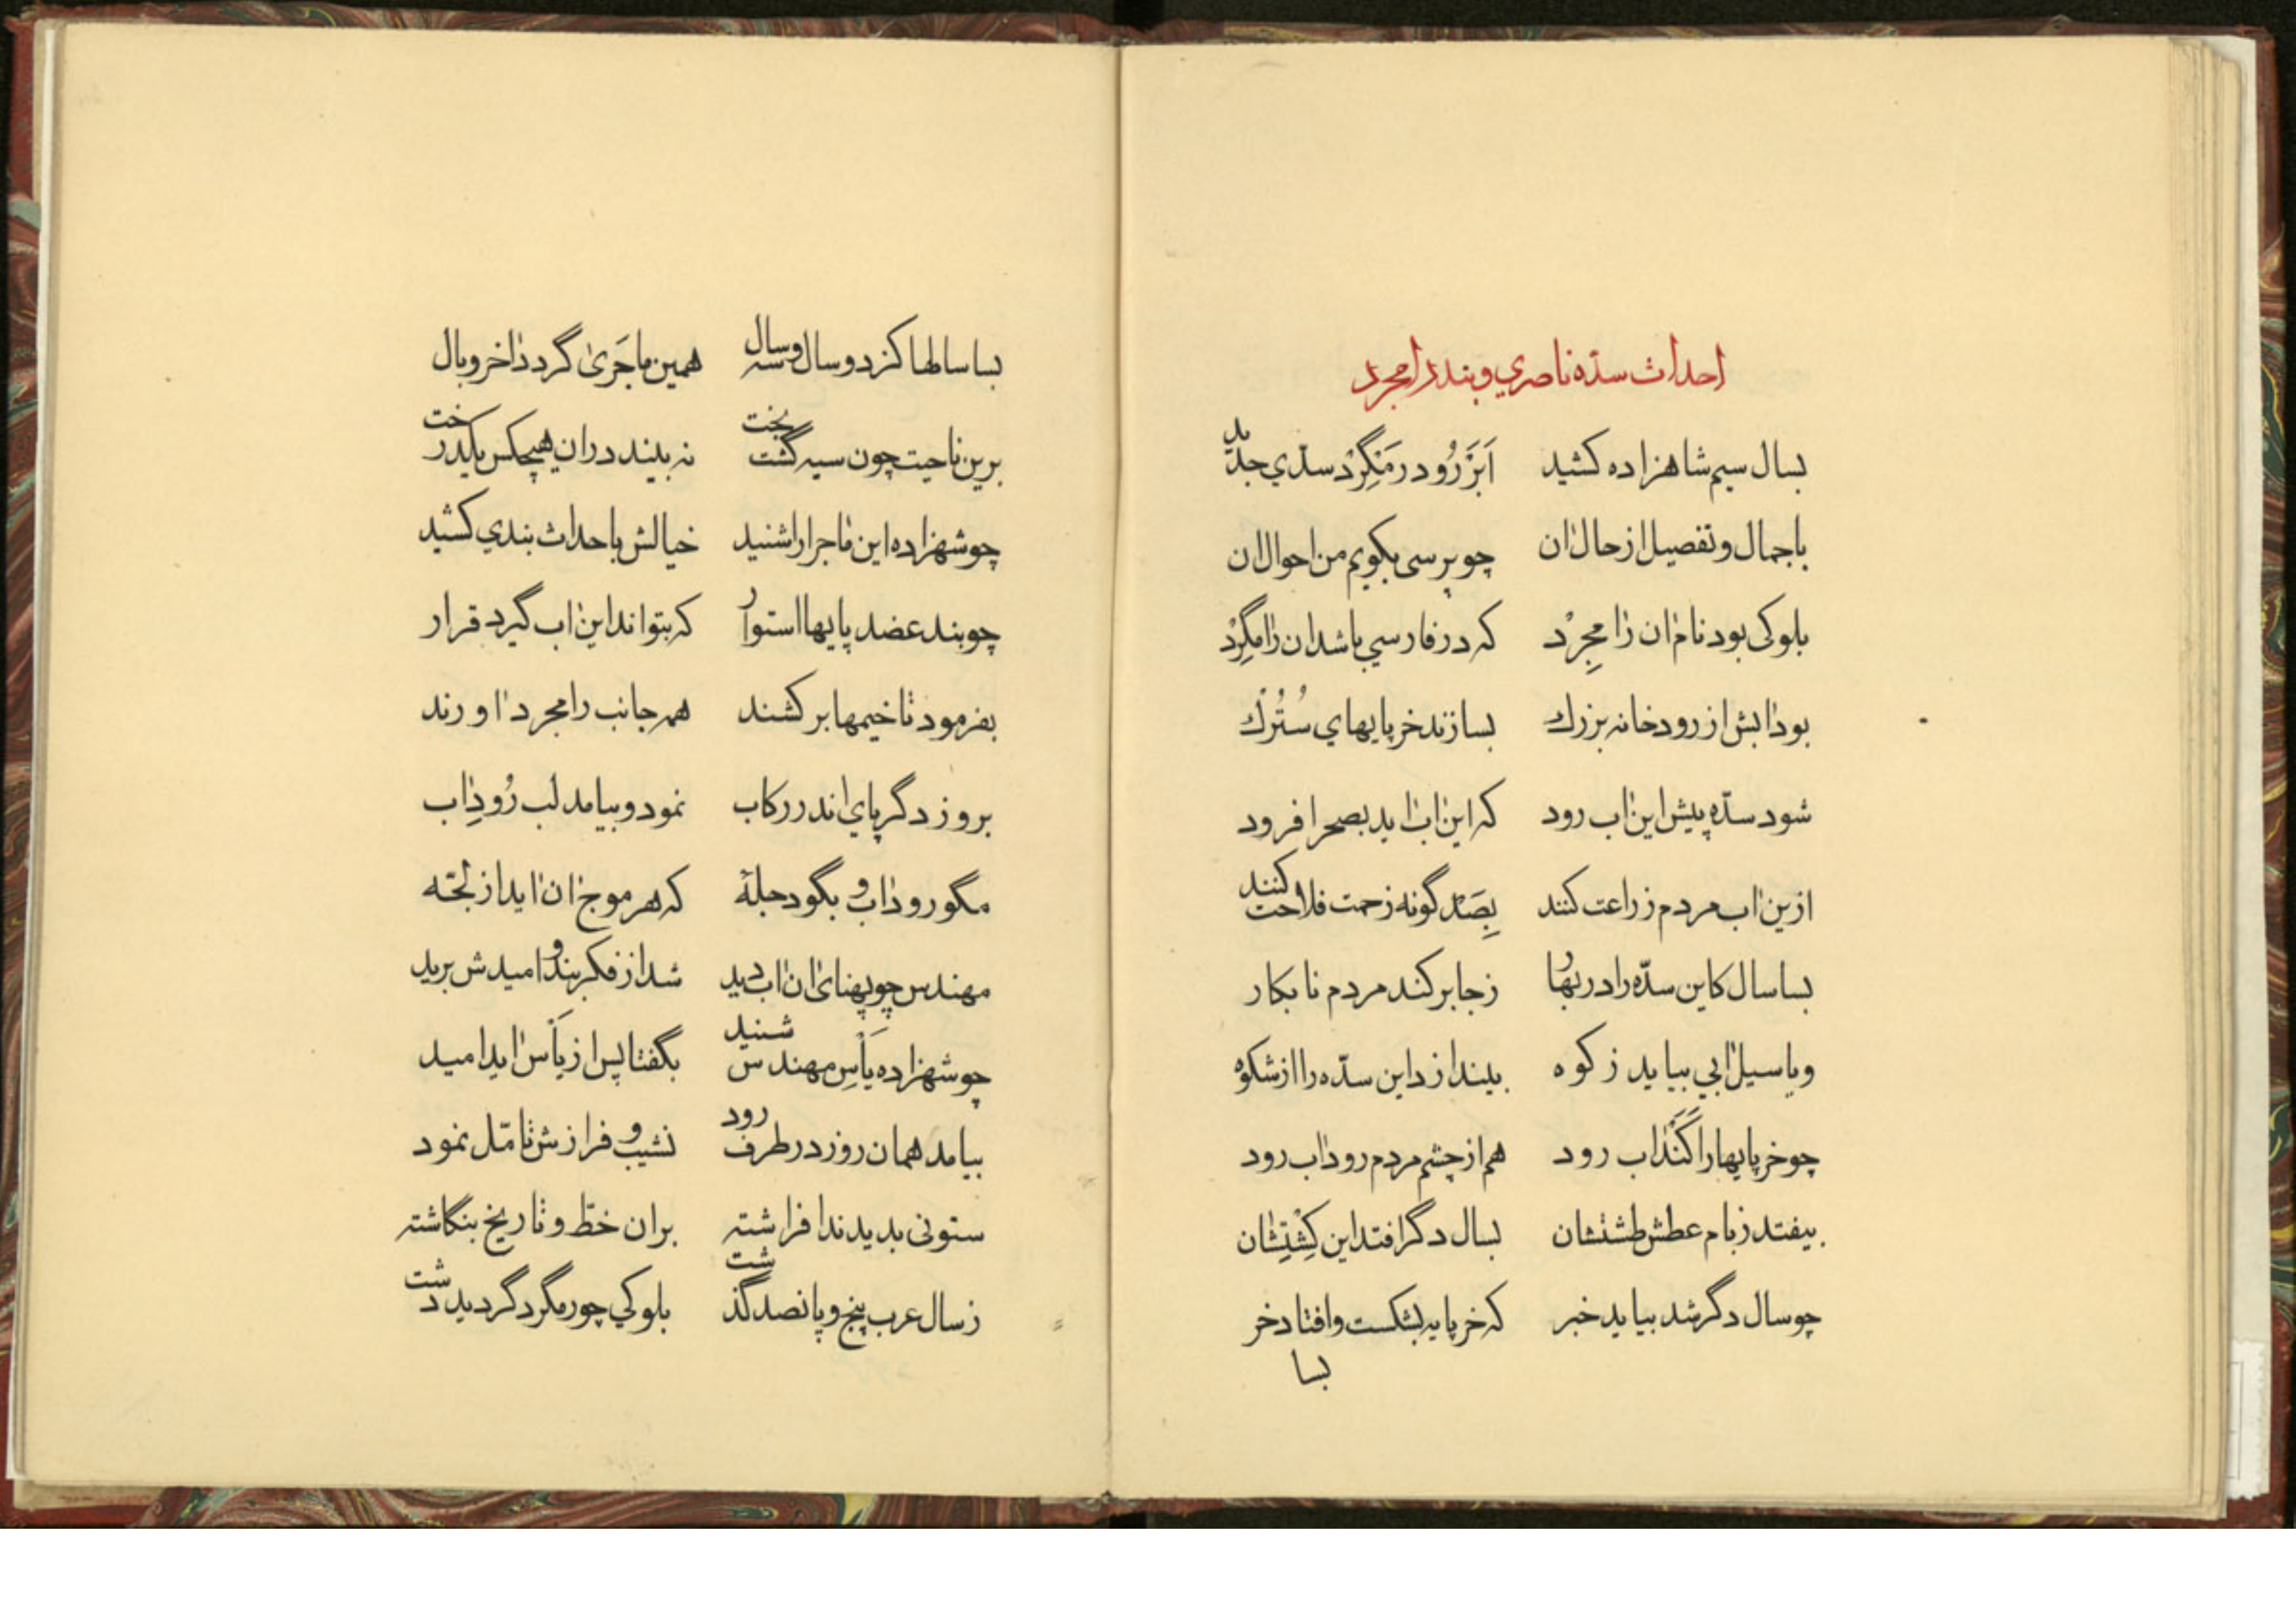 احداث سدّه ناصري و بند رامجرد
بسال سیم شاهزاده کشید ابَرْ رُود رمَنگِرْد سدّي جدید
باجمال و تفصیل از حال ان چو پرسی بکویم من احوال ان
بلوکی بود نام ان رامجِرْد که در فارسي باشد ان رامگِرْد
بود ابش از رودخانه بزرك بسازند خرپایهاي سُتُرْك
شود سدّه پیش این اب رود که این اب اید بصحرا فرود
ازین اب مردم زراعت کنند بِصَد گونه زحمت فلاحت کنند
بسا سال کاین سدّه را در بهار زجا برکند مردم نابکار
ویا سیل ابي بیاید ز کوه بیندازد این سدّه را از شکوه
چو خرپایها را کَنَد اب رود هم از چشم مردم رود اب رود
بیفتد زبام عطش طشتشان بسال دگر افتد این کِشْتِشان
چو سال دگر شد بیاید خبر که خرپایه بشکست و افتاد خر
بسا
بسا سالها کز دو سال و سه سال همین ماجَریٰ گردد اخر وبال
برین ناحیت چون سیه گشت بخت نه بیند در ان هیچکس یکدرخت
چو شهزاده این ماجرا را شنید خیالش باحداث بندي کشید
چو بند عضد پایها استوار که بتواند این اب گیرد قرار
بفرمود تا خیمها برکشند همه جانب رامجرد اورند
بروز دگر پاي اندر رکاب نمود و بیامد لب رُودِ اب
مگو رود اب و بگو دجلهٔ که هر موج ان اید از لجّه
مهندس چو پهنای ان اب دید شد از فکر بند و امیدش برید
چو شهزاده یَأسِ مهندس شنید بگفتا پس از یَأس اید امید
بیامد همان روز در طرف رود نشیب و فرازش تامّل نمود
ستونی بدیدند افراشته بران خطّ و تاریخ بنگاشته
ز سال عرب پنج و پانصد گذشت بلوکي چو رمگرد گردید دشت